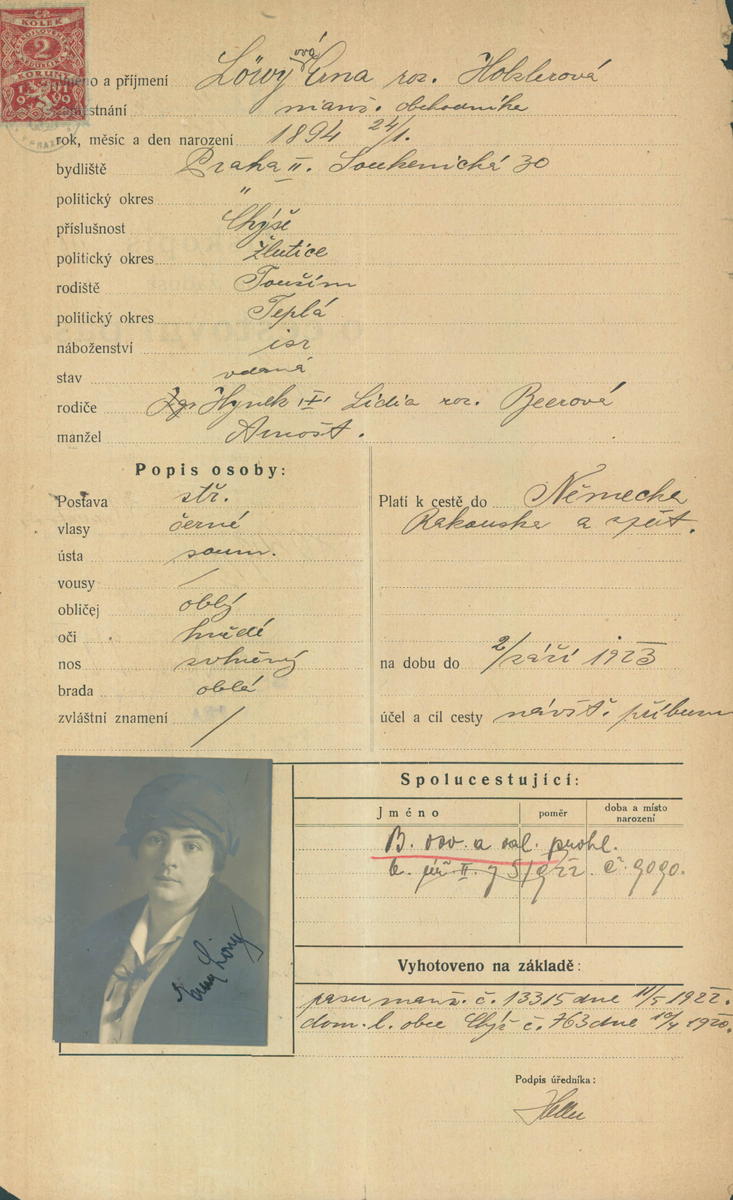 KOLEK
2
KORUNY
1919
jméno a příjmení Löwyová Erna roz. Holzlerová
zaměstnání manž. obchodníka
rok, měsíc a den narození 1894 24/1.
bydliště Praha II. Soukenická 30
politický okres "
příslušnost Chýše
politický okres Žlutice
rodiště Toužim
politický okres Teplá
náboženství isr
stav vdaná
rodiče Hynek Lidia roz. Beerová
manžel Arnošt.
Popis osoby:
Postava stř.
vlasy černé
ústa soum.
vousy /
obličej oblý
oči hnědé
nos
brada oblá
zvláštní znamení /
Platí k cestě do Německa
Rakouska a zpět.
na dobu do 2/září 1923
účel a cíl cesty návšt. příbuzn
Spolucestující:
Jméno poměr doba a místo narození
B. osv. a prohl.
II. 5/922. č. 9090.
Vyhotoveno na základě:
pasu manž. č. 13315 dne 11/5 1922.
dom. l. obce Chýš č. 763 dne 10/4 1920.
Erna Löwy
Podpis úředníka: